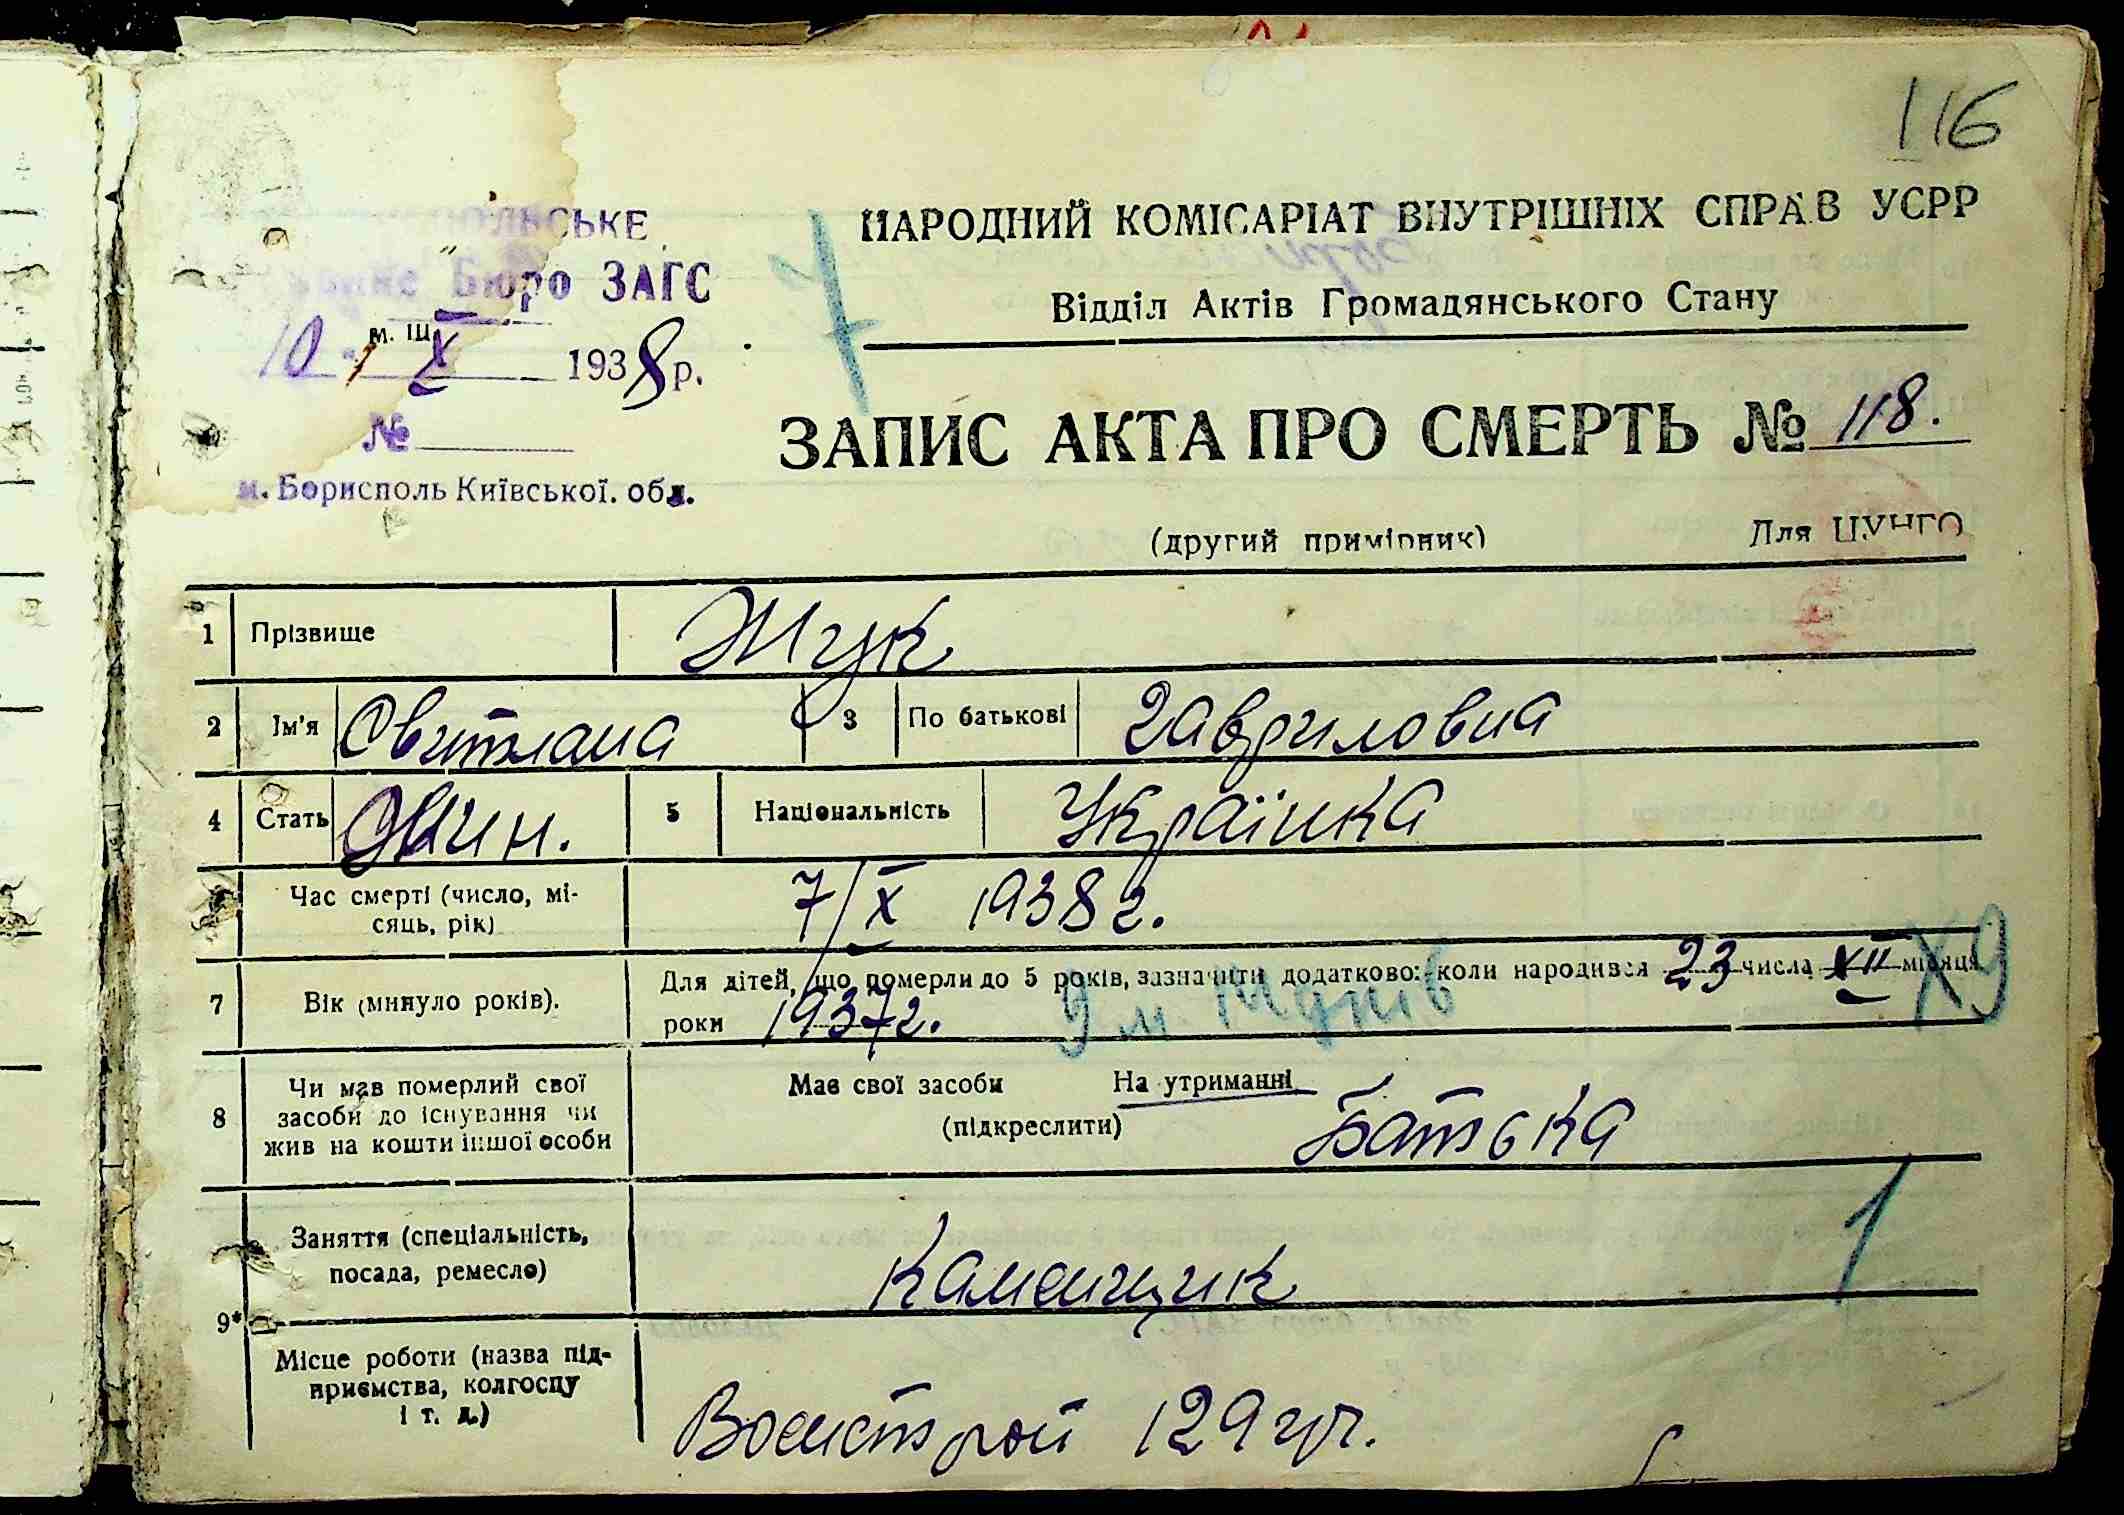 116
НАРОДНИЙ КОМІСАРІАТ ВНУТРІШНІХ СПРАВ УСРР
Відділ Актів Громадянського Стану
Бюро ЗАГС
10 X 1938 р.
№
м. Бориспіль Київської. обл.
ЗАПИС АКТА ПРО СМЕРТЬ № 118.
(другий примірник) Для ЦУНГО
1 Прізвище Жук
2 Ім'я Світлана 3 По батькові Гавриловна
4 Стать 5 Національність Українка
Час смерті (число, мі-
сяць, рік) 7/X 1938 г.
7 Вік (минуло років). Для дітей, що померли до 5 років, зазначити додатково: коли народився 23 числа XII місяця
роки 1937 г. 9 м 14 днів X9
8 Чи мав померлий свої
засоби до існування чи
жив на кошти іншої особи
Має свої засоби На утриманні
(підкреслити) Батька
Заняття (спеціальність,
посада, ремесло) Каменщик 1
9*
Місце роботи (назва під-
приємства, колгоспу
і т. д.) Воєнстрой 129